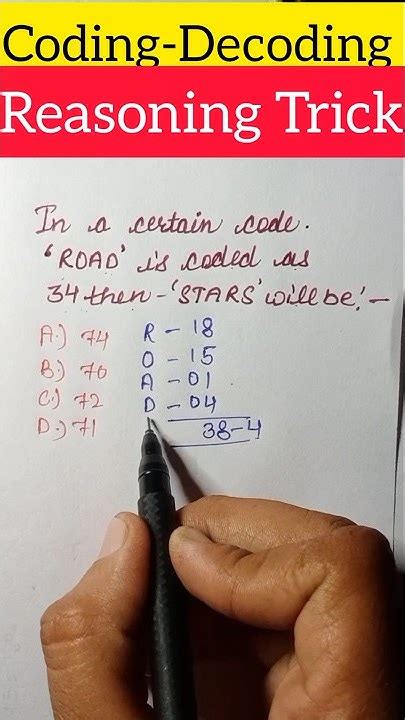 Coding-Decoding
Reasoning Trick
In a certain code.
'ROAD' is coded as
34 then - 'STARS' will be! -
A.) 74
B.) 70
C.) 72
D.) 71
R - 18
O - 15
A - 01
D - 04
38-4